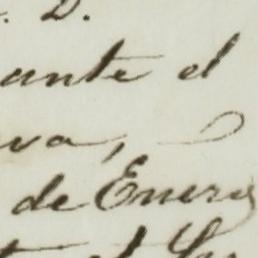 . D.
ante el
va,
de Enero